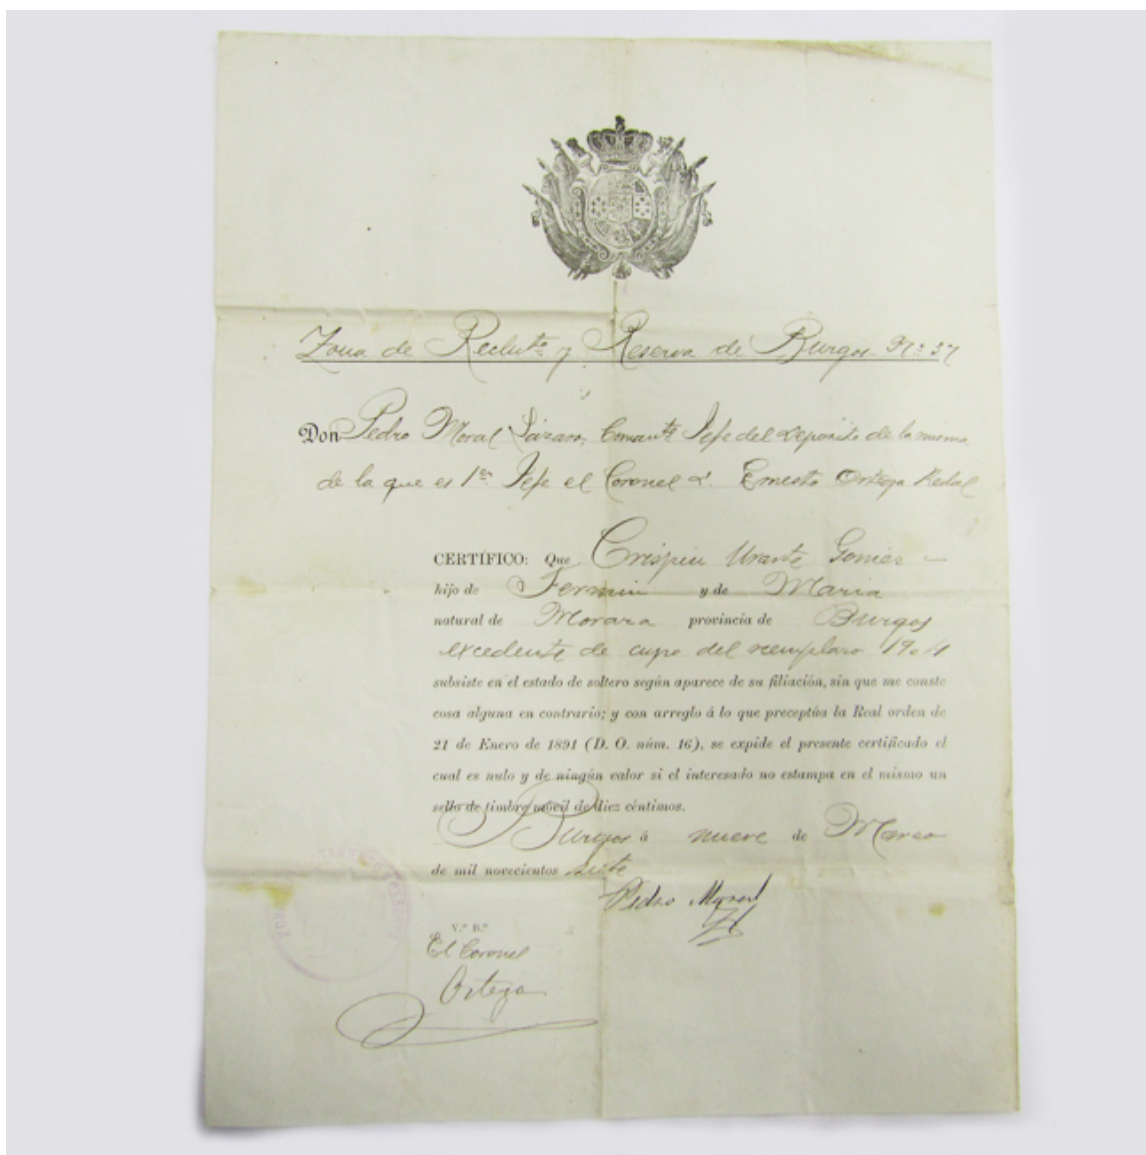 Zona de Recluta y Reserva de Burgos Nº 37
Don Pedro Moral Lázaro, Comante Jefe del Deposito de la misma
de la que es 1er Jefe el Coronel D. Ernesto Ortega
CERTÍFICO: Que Crispin Urarte Gomes
hijo de Fermin y de Maria
natural de provincia de Burgos
excedente de cupo del reemplazo 1904
subsiste en el estado de soltero según aparece de su filiación, sin que me conste
cosa alguna en contrario; y con arreglo á lo que preceptúa la Real orden de
21 de Enero de 1891 (D. O. núm. 16), se expide el presente certificado el
cual es nulo y de ningún valor si el interesado no estampa en el mismo un
sello de timbre móvil de diez céntimos.
Burgos á nueve de Marzo
de mil novecientos siete
Pedro Moral
V.º B.º
El Coronel
Ortega